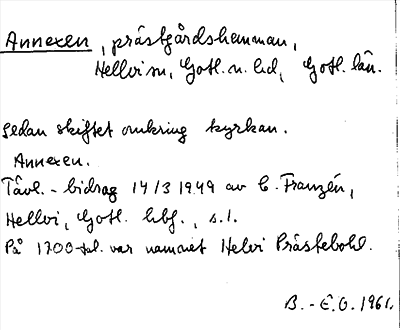 Annexen, prästgårdshemman,
Hellvi sn, Gotl. n. hd, Gotl. län.
Sedan skiftet omkring kyrkan.
Annexen.
Tävl.-bidrag 14/3 1949 av C. Franzén,
Hellvi, Gotl. hbf., s. 1.
På 1700-tal. var namnet Helvi Prästebohl.
B.-E.O. 1961.